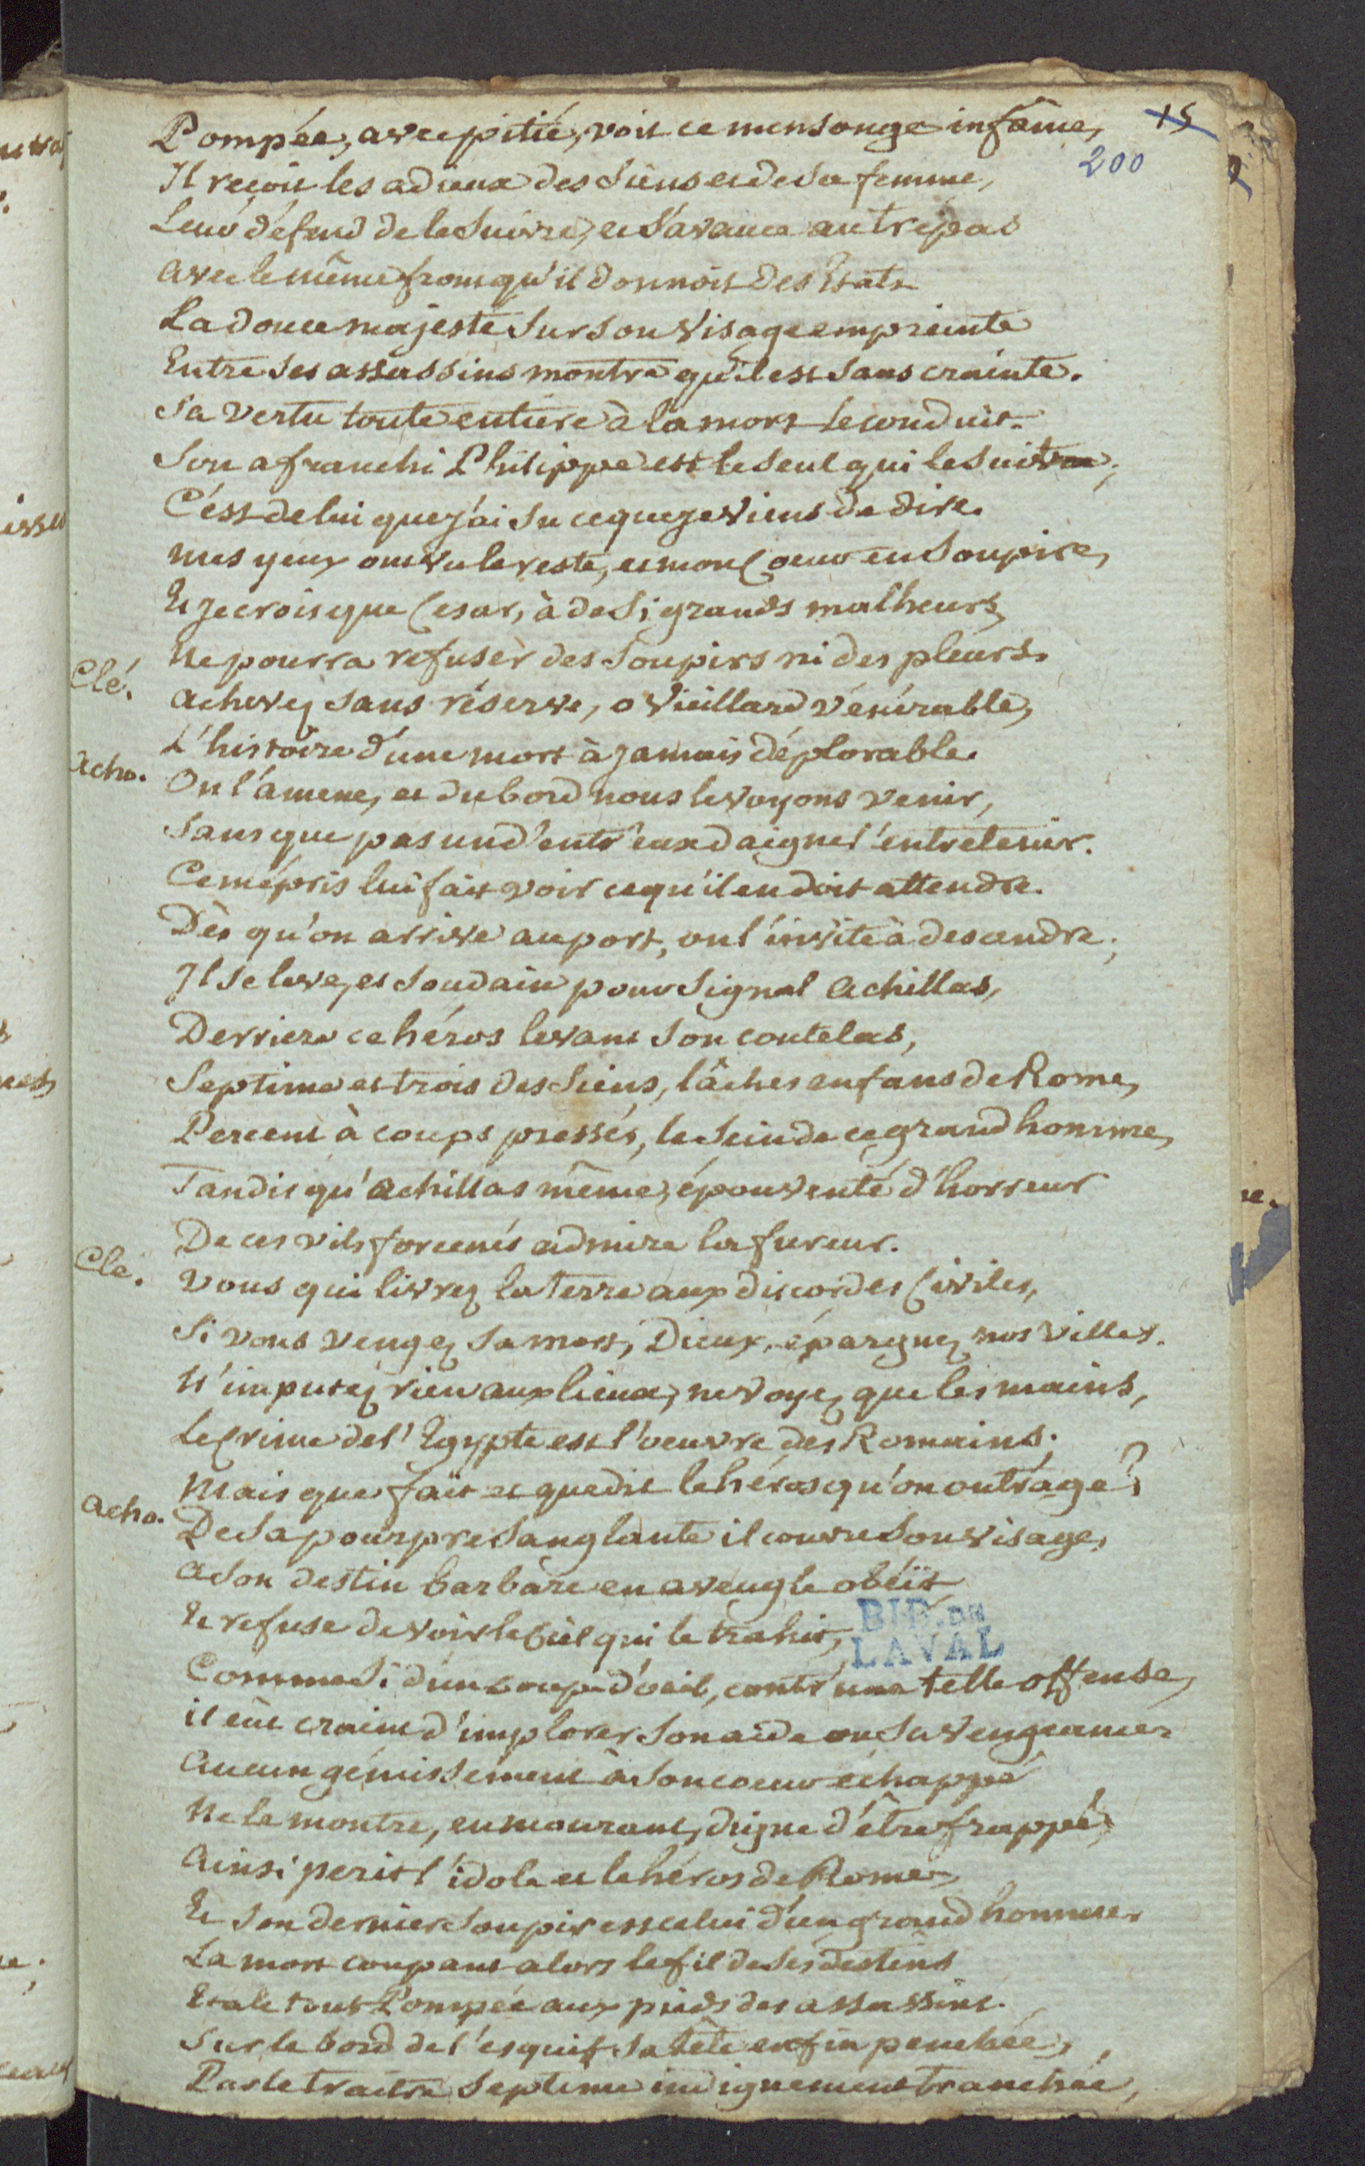 15
200
Pompée, avec pitié, voit ce mensonge infâme,
Il reçoit les adieux des siens et de sa femme,
Leur défend de le suivre, et s'avance au trépas
avec le même front qu'il donnoit des Etats.
La douce majesté sur son visage empreinte
Entre ses assassins montre qu'il est sans crainte.
Sa vertu toute entiere à la mort le conduit.
Son afranchi Philippe est le seul qui le suit;
C'est de lui que j'ai su ce que je viens de dire.
mes yeux ont vu le reste, et mon Coeur en soupire,
Et je crois que Cesar, à de si grands malheurs,
Ne pourra refuser des soupirs ni des pleurs.
Clé.
achevez sans réserve, o vieillard vénérable,
L'histoire d'une mort à jamais déplorable.
Acho.
On l'amene, et du bord nous le voyons venir,
sans que pas un d'entr'eux daigne l'entretenir.
Ce mépris lui fait voir ce qu'il en doit attendre.
Dès qu'on arrive au port, on l'invite à desandre;
Il se leve, et soudain pour signal Achillas,
Derriere ce héros levant son coutelas,
Septime et trois des siens, lâches enfans de Rome,
Percent à coups pressés, le sein de ce grand homme,
Tandis qu'Achillas même, épouventé d'horreur
De ces vils forcenés admire la fureur.
Clé.
Vous qui livrez la terre aux discordes Civiles,
Si vous vengez sa mort, Dieux, épargnez nos villes.
N'imputez rien aux lieux, ne voyez que les mains,
Le Crime de l'Egypte est l'oeuvre des Romains.
Mais que fait et que dit le héros qu'on outrage?
Acho.
De sa pourpre sanglante il couvre son visage,
A son destin barbare en aveugle obéit
Et refuse de voir le Ciel qui le trahit,
BIB. DE
LAVAL
Comme si d'un coup d'oeil, contr'une telle offense,
il eût craint d'implorer son aide ou sa vengeance.
Aucun gémissement à son coeur échappé
Ne le montre, en mourant, digne d'être frappé,
Ainsi perit l'idole et le héros de Rome,
Et son dernier soupir est celui d'un grand homme.
La mort coupant alors le fil de ses destins
Etale tout Pompée aux pieds des assassins.
Sur le bord de l'esquif sa tête enfin penchée,
Par le traitre Septime indignement tranchée,